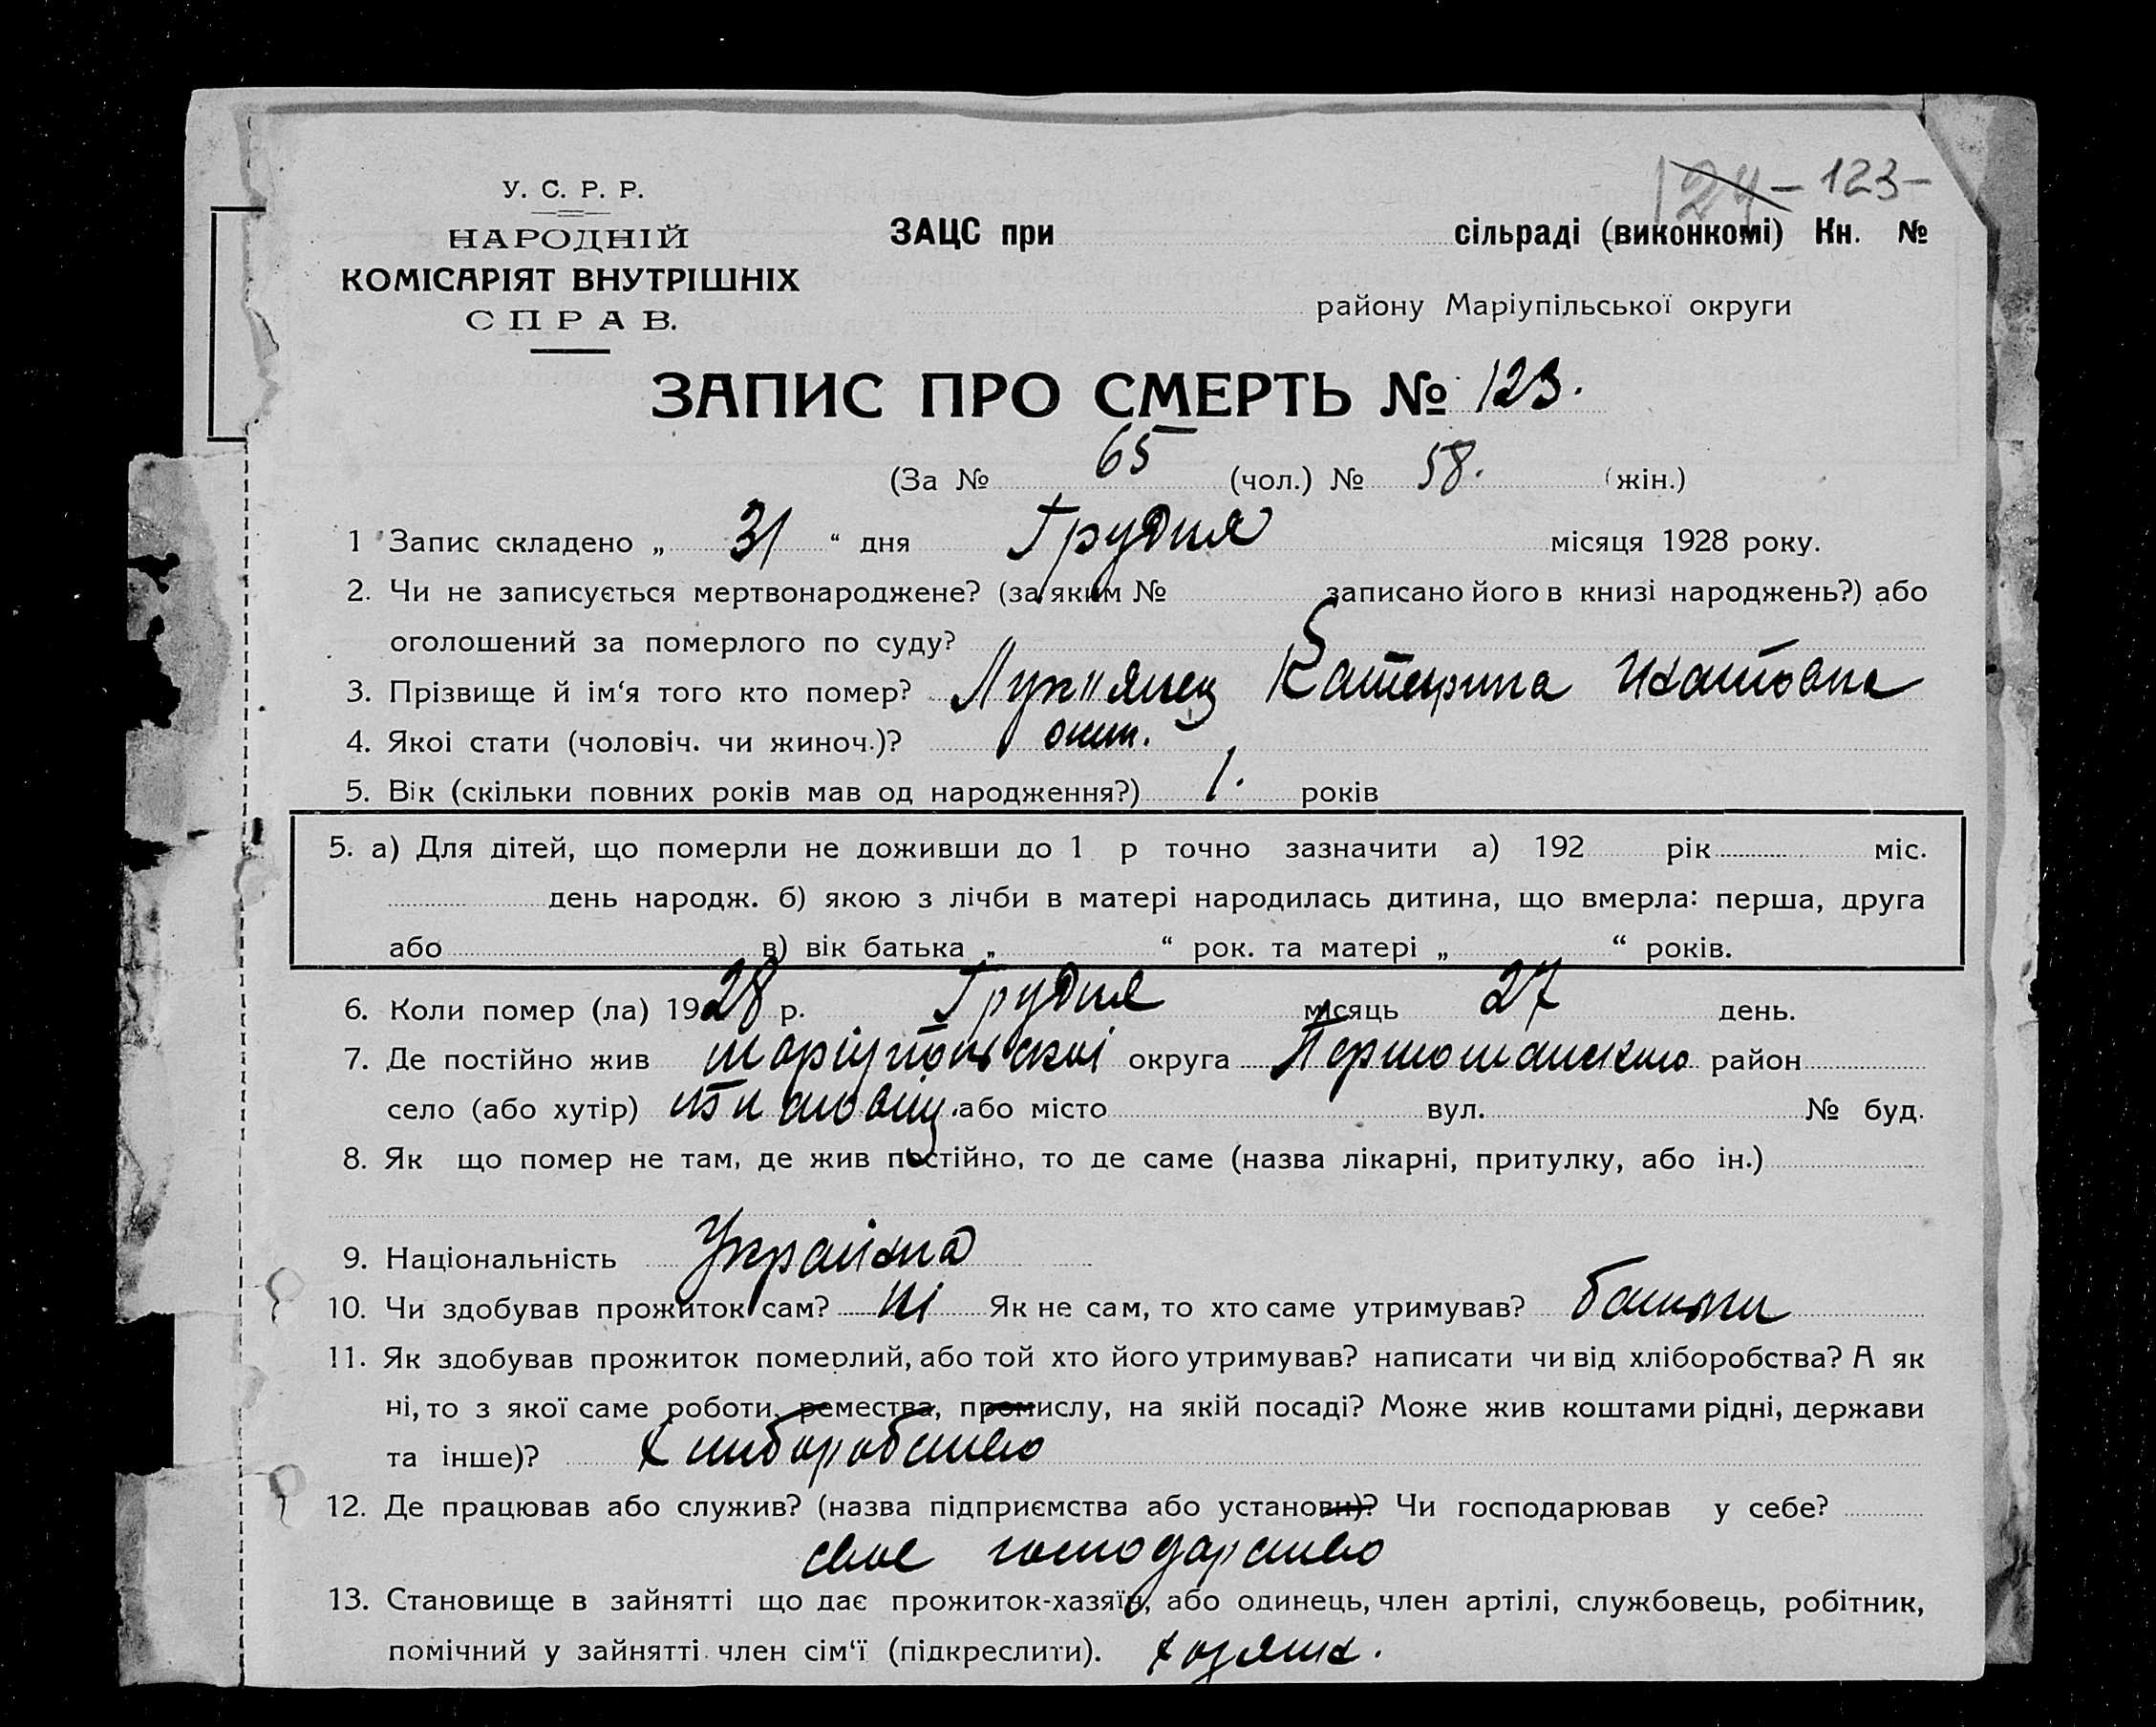 124 - 123 -
У. С. Р. Р.
НАРОДНІЙ
КОМІСАРІЯТ ВНУТРІШНІХ
СПРАВ.
ЗАЦС при сільраді (виконкомі) Кн. №
району Маріупільської округи
ЗАПИС ПРО СМЕРТЬ № 123.
(За № 65 (чол.) № 58. (жін.)
1 Запис складено „ 31 “ дня Грудня місяця 1928 року.
2. Чи не записується мертвонароджене? (за яким № записано його в книзі народжень?) або
оголошений за померлого по суду?
3. Прізвище й ім‘я того кто помер? Лук"янец Катерина
4. Якоі стати (чоловіч. чи жиноч.)?
5. Вік (скільки повних років мав од народження?) 1. років
5. а) Для дітей, що померли не доживши до 1 р точно зазначити а) 192 рік міс.
день народж. б) якою з лічби в матері народилась дитина, що вмерла: перша, друга
або в) вік батька „ “ рок. та матері „ “ років.
6. Коли помер (ла) 1928 р. Грудня місяць 27 день.
7. Де постійно жив округа район
село (або хутір) або місто вул. № буд.
8. Як що помер не там, де жив постійно, то де саме (назва лікарні, притулку, або ін.)
9. Національність Українка
10. Чи здобував прожиток сам? ні Як не сам, то хто саме утримував? батьки
11. Як здобував прожиток померлий, або той хто його утримував? написати чи від хліборобства? А як
ні, то з якої саме роботи, ремества, промислу, на якій посаді? Може жив коштами рідні, держави
та інше)? Хліборобство
12. Де працював або служив? (назва підприємства або установи)? Чи господарював у себе?
своє господарство
13. Становище в зайнятті що дає прожиток-хазяїн, або одинець, член артілі, службовець, робітник,
помічний у зайнятті член сім‘ї (підкреслити).